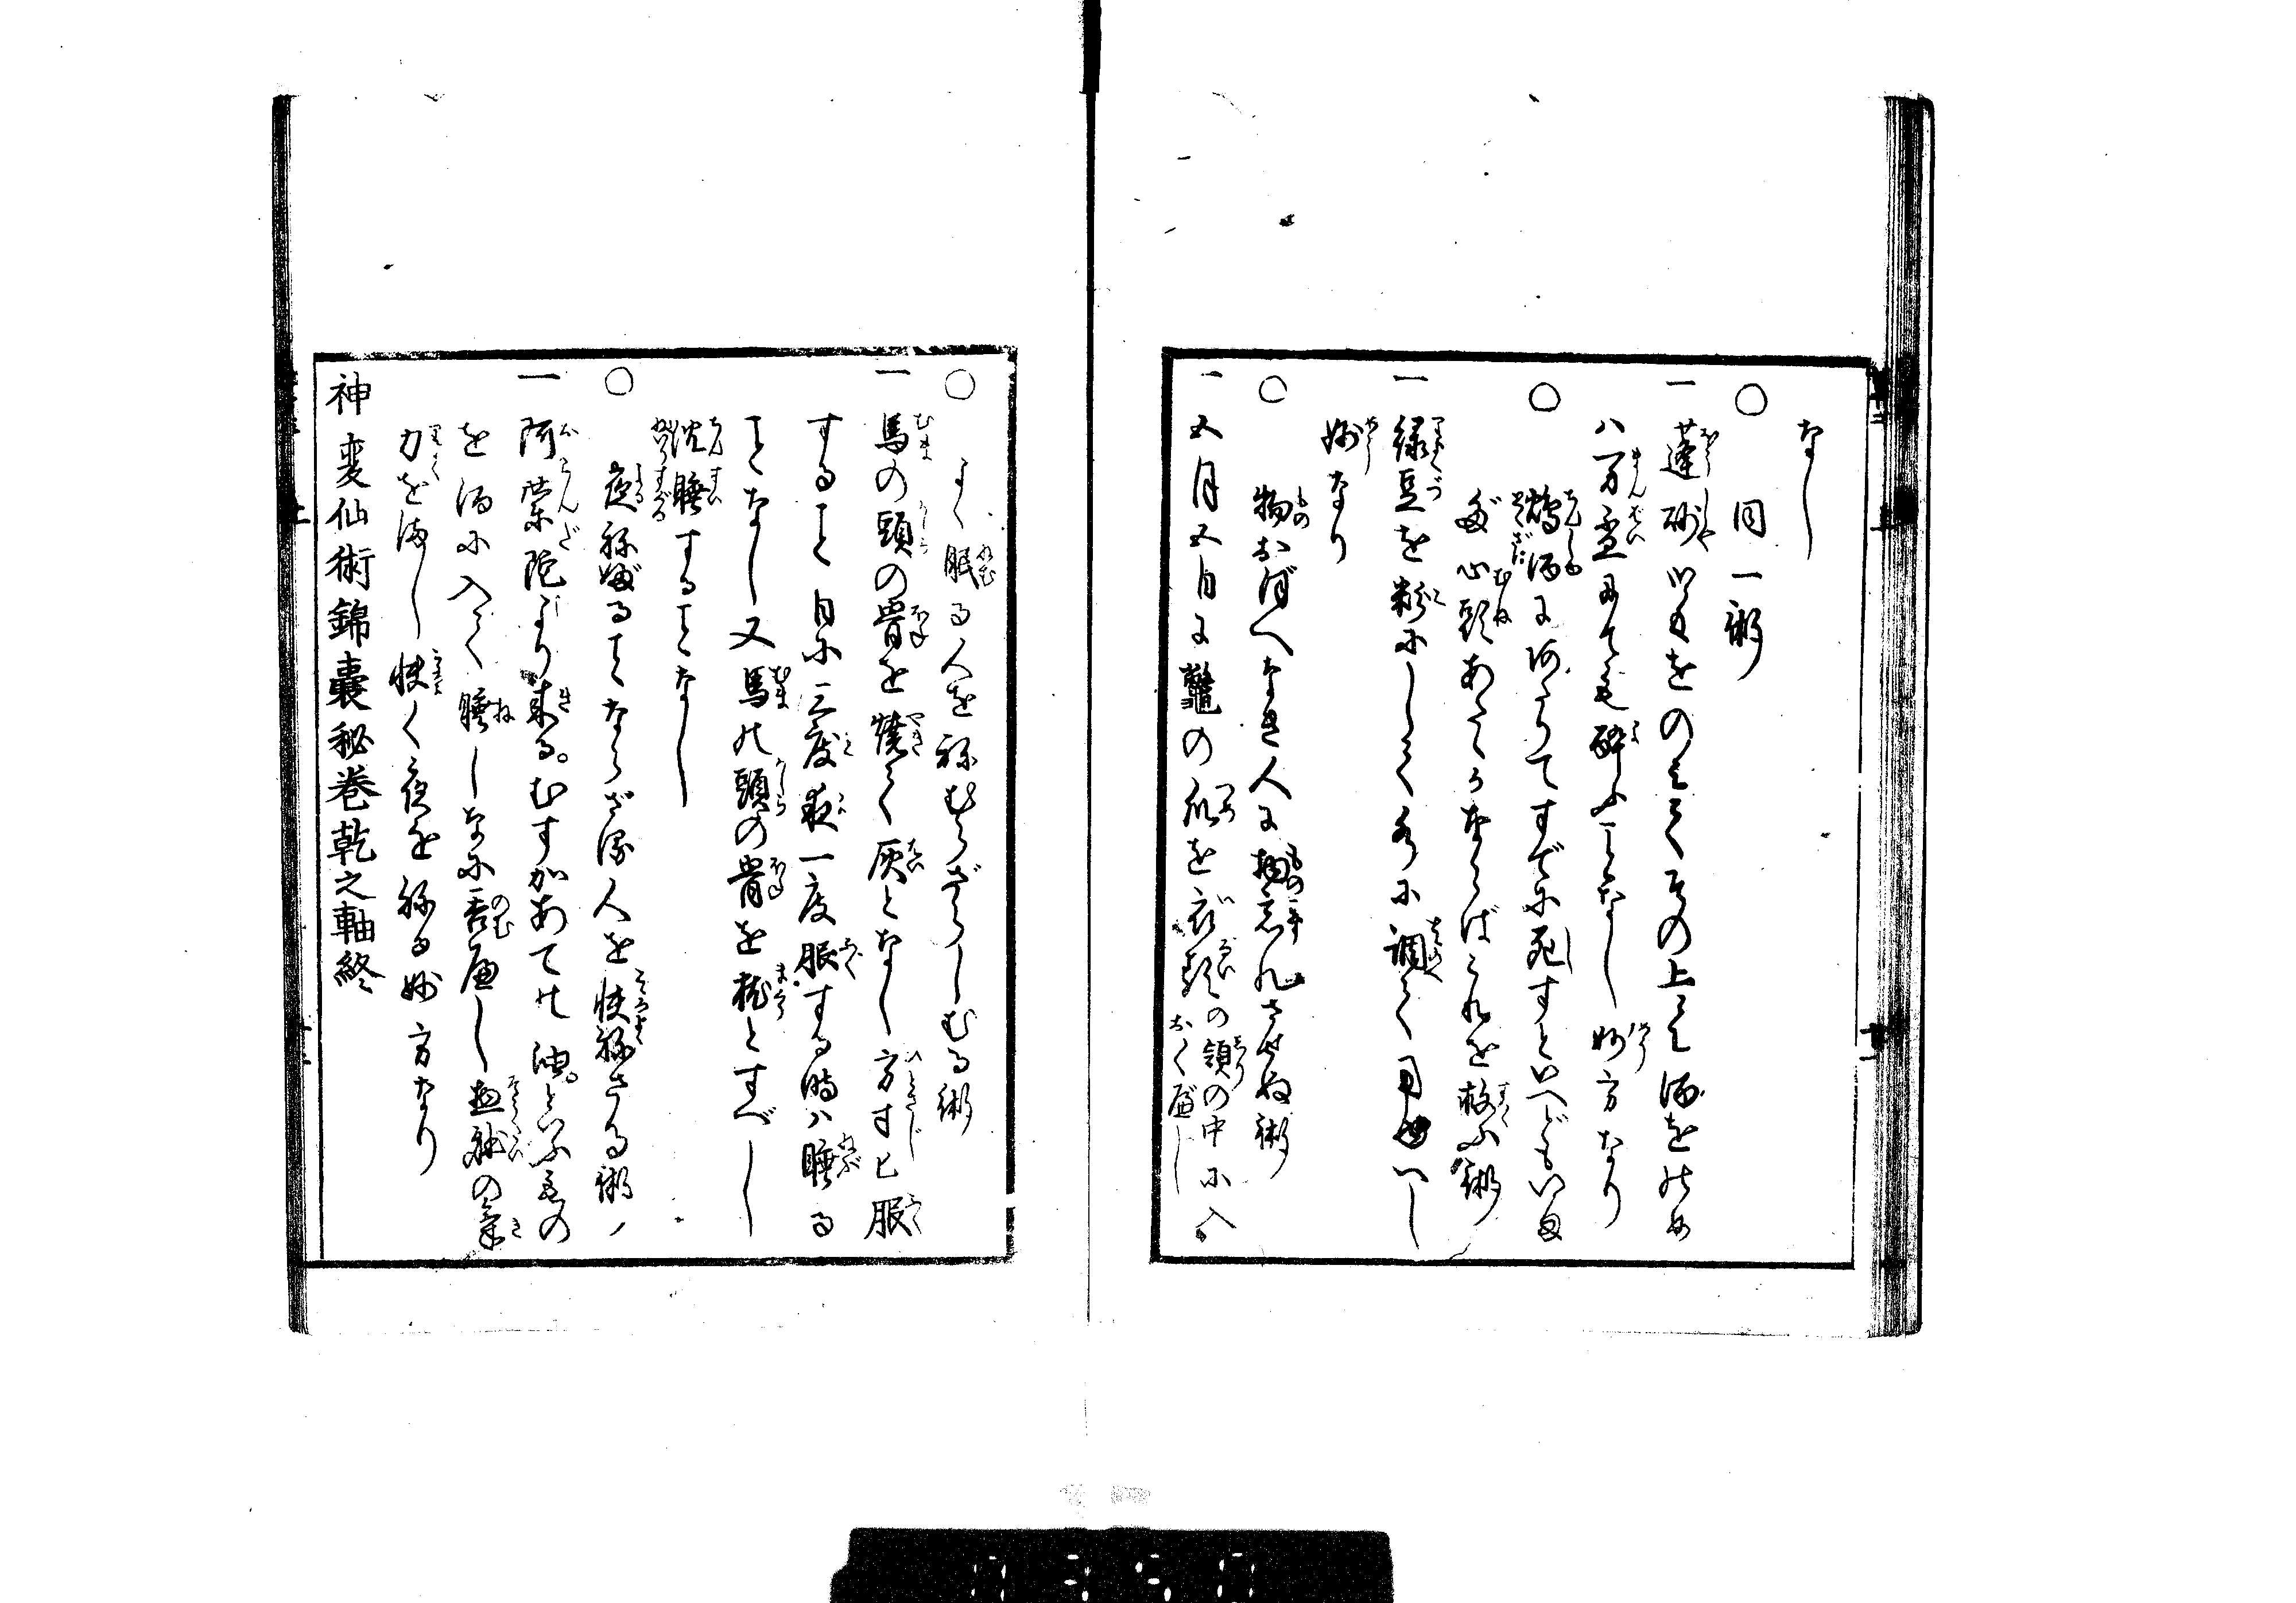 なし
○ 同一術
一 蓬砂少をのみてその上にて酒をのめ
ハ万盃にても酔ふことなし妙方なり
○ 鴆酒にあたりてすでに死すといへどもいま
だ心頭あたゝかならばこれを救ふ術
一 緑豆を粉にしてみづに調て用ゆべし
妙なり
○ 物おぼへなき人に物忘れさせぬ術
一 五月五日に鼈の爪を衣類の領の中に入
おくべし
○ よく眠る人をねむらざらしむる術
一 馬の頭の骨を焼て灰となし方寸匕服
すること日に三度夜一度服する時ハ睡る
ことなし又馬の頭の骨を枕とすべし
沈睡することなし
○ 夜ねぶることならざる人を快ねさする術
一 阿蘭陀より来る。むすかあての油といふもの
を酒に入て睡しなに呑べし惣躰の気
力をまし快く夜をねる妙方なり
神変仙術錦嚢秘巻乾之軸終